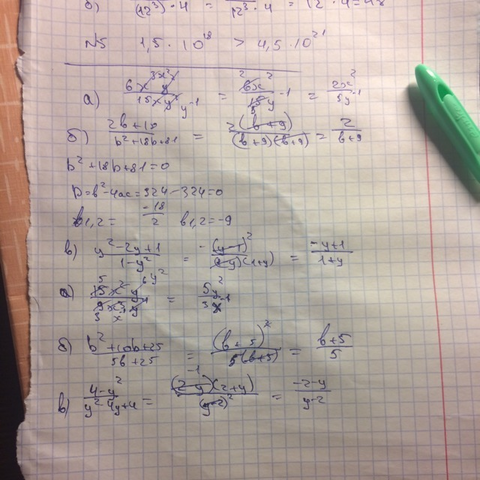 б) (12³)·4 = 12³·4 = 12·4=48
N5 1,5·10¹⁸ > 4,5·10²¹
а) 6x³y / 15xy² y⁻¹ = 6x² / 15y⁻¹ = 2x² / 5y⁻¹
б) 2b+18 / b²+18b+81 = 2(b+9) / (b+9)(b+9) = 2 / b+9
b²+18b+81=0
D=b²-4ac=324-324=0
b1,2= -18/2 b1,2=-9
в) y²-2y+1 / 1-y² = -(y-1)² / (1-y)(1+y) = -y+1 / 1+y
б) b²+10b+25 / 5b+25 = (b+5)² / 5(b+5) = b+5 / 5
в) 4-y² / y²4y+4 = (2-y)(2+y) / (y-2)² = -2-y / y-2